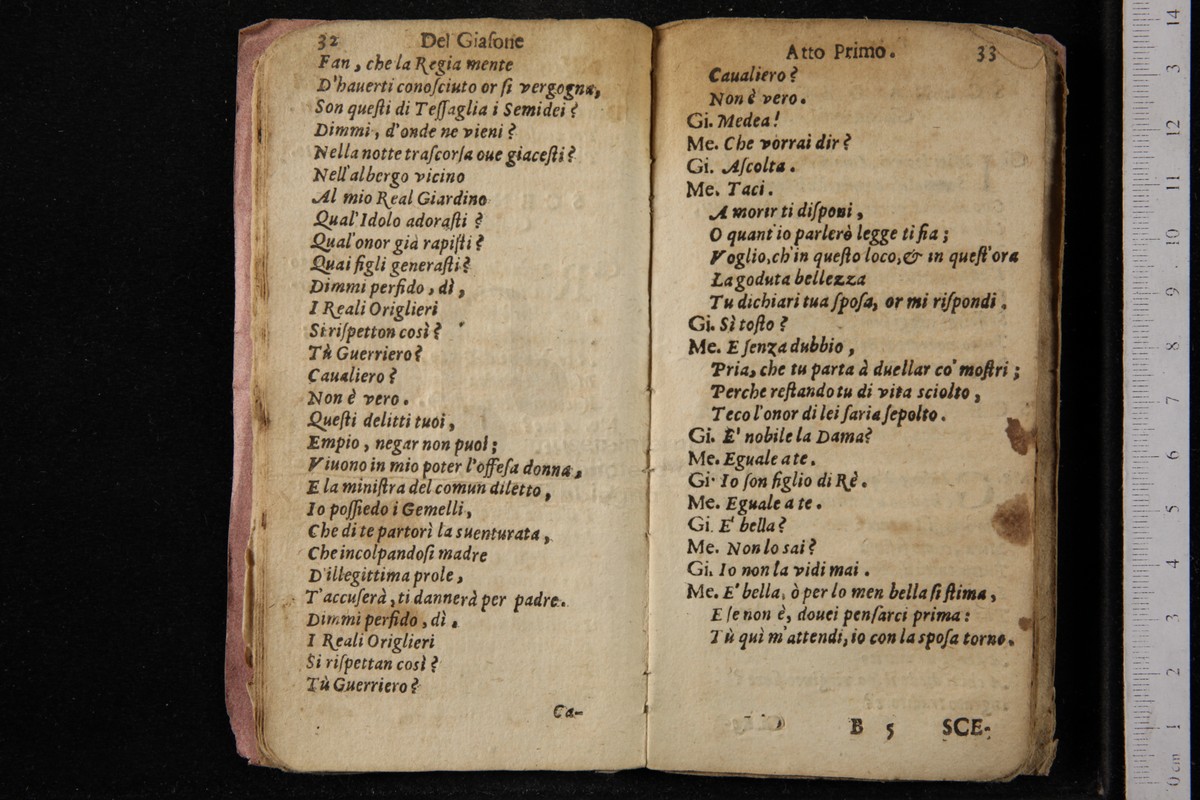 32 Del Giaſone
Fan, che la Regia mente
D'hauerti conoſciuto or ſi vergogna,
Son queſti di Teſſaglia i Semidei?
Dimmi, d'onde ne vieni?
Nella notte traſcorſa oue giaceſti?
Nell'albergo vicino
Al mio Real Giardino
Qual'Idolo adoraſti?
Qual'onor già rapiſti?
Quai figli generaſti?
Dimmi perfido, dì,
I Reali Origlieri
Si riſpetton così?
Tù Guerriero?
Caualiero?
Non è vero.
Queſti delitti tuoi,
Empio, negar non puoi;
Viuono in mio poter l'offeſa donna,
E la miniſtra del comun diletto,
Io poſſiedo i Gemelli,
Che di te partorì la suenturata,
Che incolpandoſi madre
D'illegittima prole,
T'accuſerà, ti dannerà per padre.
Dimmi perfido, dì,
I Reali Origlieri
Si riſpettan così?
Tù Guerriero?
Ca-
Atto Primo. 33
Caualiero?
Non è vero.
Gi. Medea!
Me. Che vorrai dir?
Gi. Aſcolta.
Me. Taci.
A morir ti diſponi,
O quant'io parlerò legge ti fia;
Voglio, ch'in queſto loco, & in queſt'ora
La goduta bellezza
Tu dichiari tua ſpoſa, or mi riſpondi.
Gi. Sì toſto?
Me. E ſenza dubbio,
Pria, che tu parta à duellar co' moſtri;
Perche reſtando tu di vita sciolto,
Teco l'onor di lei ſaria ſepolto.
Gi. E' nobile la Dama?
Me. Eguale a te.
Gi. Io ſon figlio di Rè.
Me. Eguale a te.
Gi. E' bella?
Me. Non lo sai?
Gi. Io non la vidi mai.
Me. E' bella, ò per lo men bella ſi ſtima,
E ſe non è, douei penſarci prima:
Tù quì m'attendi, io con la spoſa torno.
B 5 SCE-
0 cm 1 2 3 4 5 6 7 8 9 10 11 12 3 14